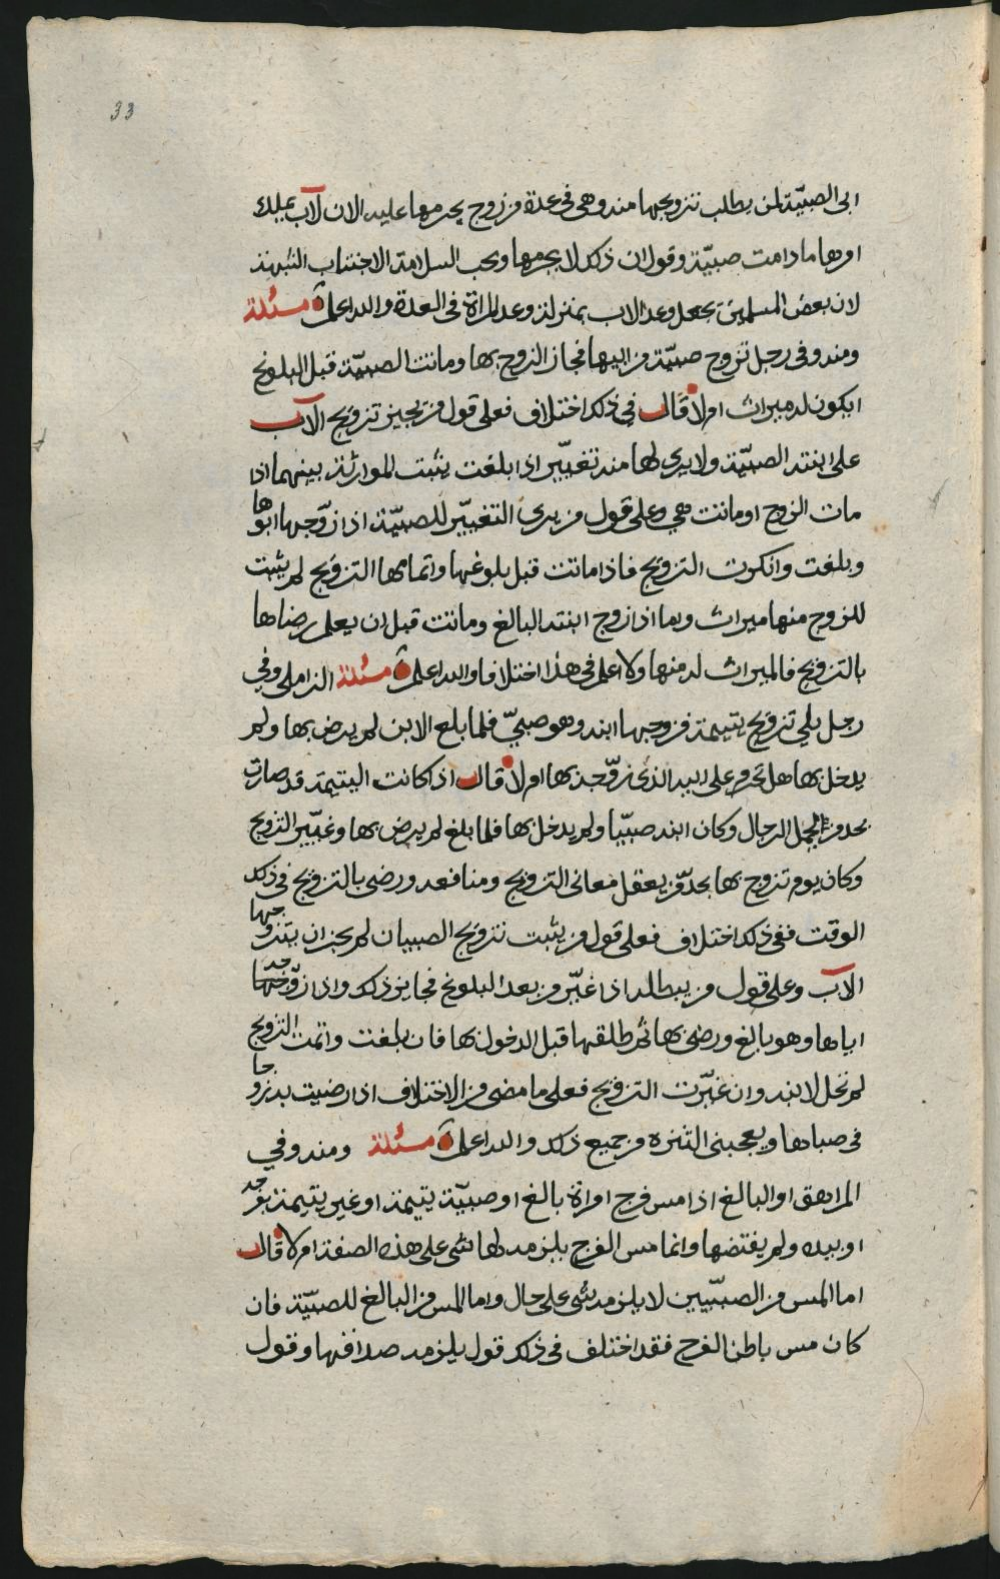 33
ابي الصبيّة لمن يطلب تزويجها منه وهي في عدة من زوج يحرمها عليه الان لآب يملك
امرها ما دامت صبيّة وقول ان ذلك لا يحرمها ويحب السلامة الاجتناب الشبهة
لان بعض المسلمين يجعل وعد الاب بمنزلة وعد المراة في العدة والله اعلم مسئلة
ومنه وفي رجل تزوج صبيّة من ابيها فجاز الزوج بها وماتت الصبيّة قبل البلوغ
ايكون له ميراث ام لا قال في ذلك اختلاف فعلى قول من يجيز تزويج الآب
على ابنته الصبيّة ولا يرى لها منه تغييّر اذا بلغت يثبت الموارثة بينهما اذا
مات الزوج او ماتت هي وعلى قول من يرى التغييّر للصبيّة اذا زوّجها ابوها
وبلغت وانكرت التزويج فاذا ماتت قبل بلوغها واتمامها التزويج لم يثبت
للزوج منها ميراث وبما اذا زوج ابنته البالغ وماتت قبل ان يعلم رضاها
بالتزويج فالميراث له منها ولا اعلم في هذا اختلافا والله اعلم مسئلة الزاملي وفي
رجل يلي تزويج يتيمة فزوجها ابنه وهو صبيّ فلما بلغ الابن لم يرض بها ولم
يدخل بها هل تحرم على ابيه الذي زوّجه بها ام لا قال اذا كانت اليتيمة قد صارت
بحد من الرجال وكان ابنه صبيّا ولم يدخل بها فلما بلغ لم يرض بها وغيّر التزويج
وكان يوم تزوج بها بحدّ من يعقل معاني التزويج ومنافعه ورضي بالتزويج في ذلك
الوقت ففي ذلك اختلاف فعلى قول من يثبت تزويج الصبيان لم يجز ان يتزوجها
الآب وعلى قول من يبطله اذا غيّر من بعد البلوغ فجايز ذلك واذا زوّجه
اياها وهو بالغ ورضي بها ثم طلقها قبل الدخول بها فان بلغت واتمت التزويج
لم تحل لابيه وان غيّرت التزويج فعلى ما مضى من الاختلاف اذا رضيت به زوجا
في صباها ويعجبني التنزه من جميع ذلك والله اعلم مسئلة ومنه وفي
المراهق او البالغ اذا مس فرج امراة بالغ او صبيّة يتيمة او غير يتيمة
او بيده ولم يفتضها وانما مس الفرج يلزمه لها شي على هذه الصفة ام لا قال
اما المس من الصبيّين لا يلزمه شي على حال واما المس من البالغ للصبيّة فان
كان مس باطن الفرج فقد اختلف في ذلك قول يلزمه صداقها وقول